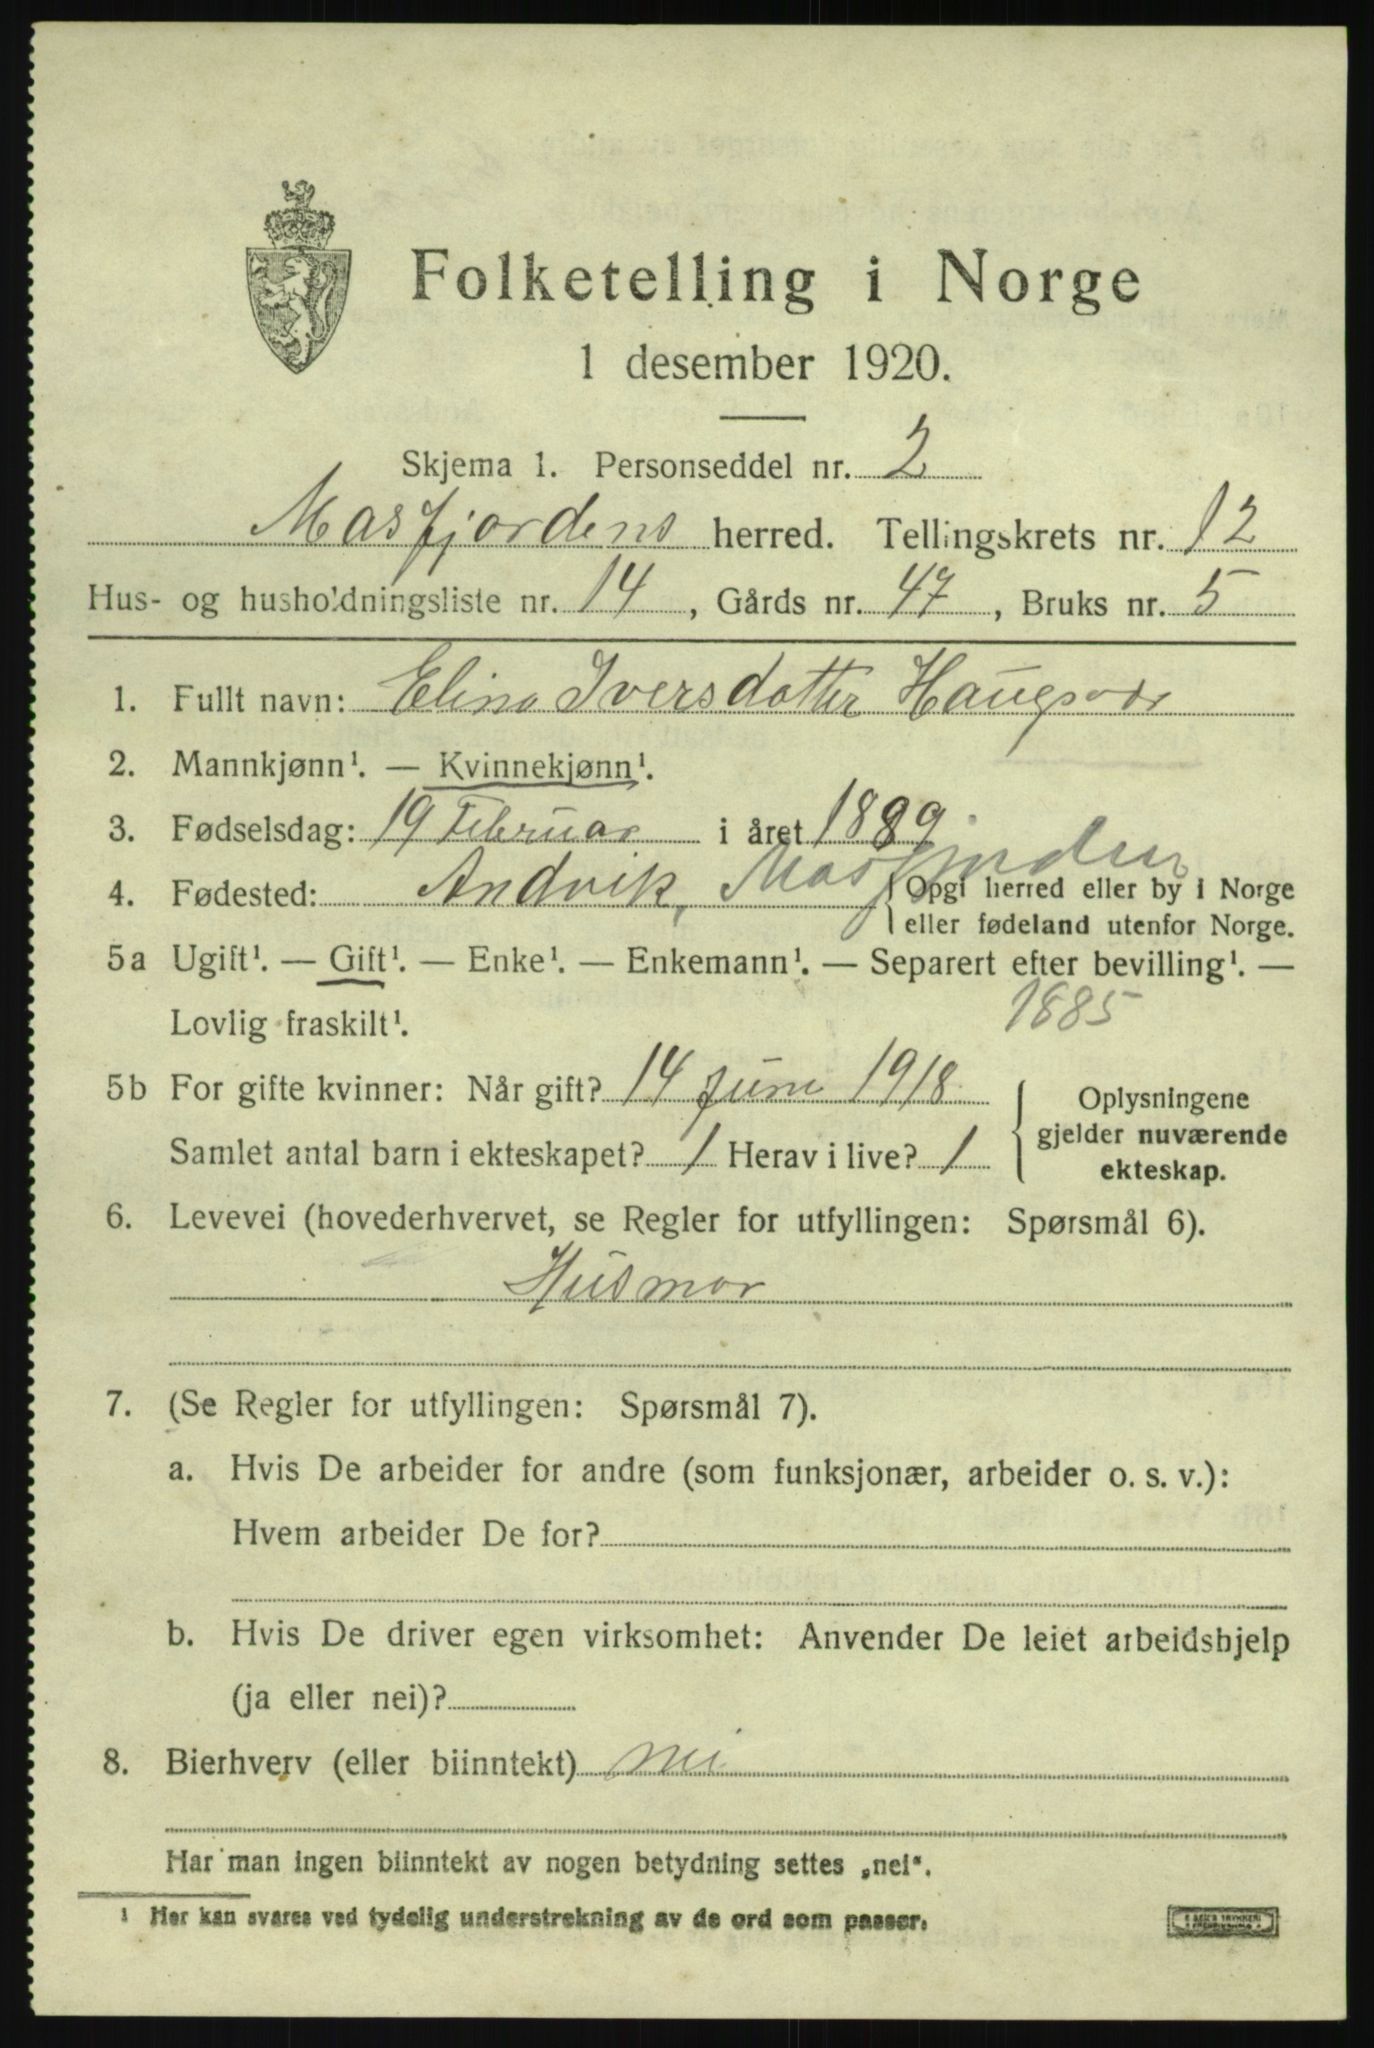 Folketelling i Norge
1 desember 1920.
Skjema 1. Personseddel nr. 2
Masfjordens herred. Tellingskrets nr. 12
Hus- og husholdningsliste nr. 14, Gårds nr. 47, Bruks nr. 5
1. Fullt navn: Elina Iversdatter
2. Mannkjønn¹. — Kvinnekjønn¹.
3. Fødselsdag: 19 Februar i året 1889.
4. Fødested: Andvik, Masfjorden {Opgi herred eller by i Norge
eller fødeland utenfor Norge.
5a Ugift¹. — Gift¹. — Enke¹. — Enkemann¹. — Separert efter bevilling¹. —
Lovlig fraskilt¹. 1885
5b For gifte kvinner: Når gift? 14 Juni 1918 { Oplysningene
gjelder nuværende
Samlet antal barn i ekteskapet? 1 Herav i live? 1
ekteskap.
6. Levevei (hovederhvervet, se Regler for utfyllingen: Spørsmål 6).
Husmor
7. (Se Regler for utfyllingen: Spørsmål 7).
a. Hvis De arbeider for andre (som funksjonær, arbeider o. s. v.):
Hvem arbeider De for?
b. Hvis De driver egen virksomhet: Anvender De leiet arbeidshjelp
(ja eller nei)?
8. Bierhverv (eller biinntekt) nei
Har man ingen biinntekt av nogen betydning settes „nei“.
¹ Her kan svares ved tydelig understrekning av de ord som passer.